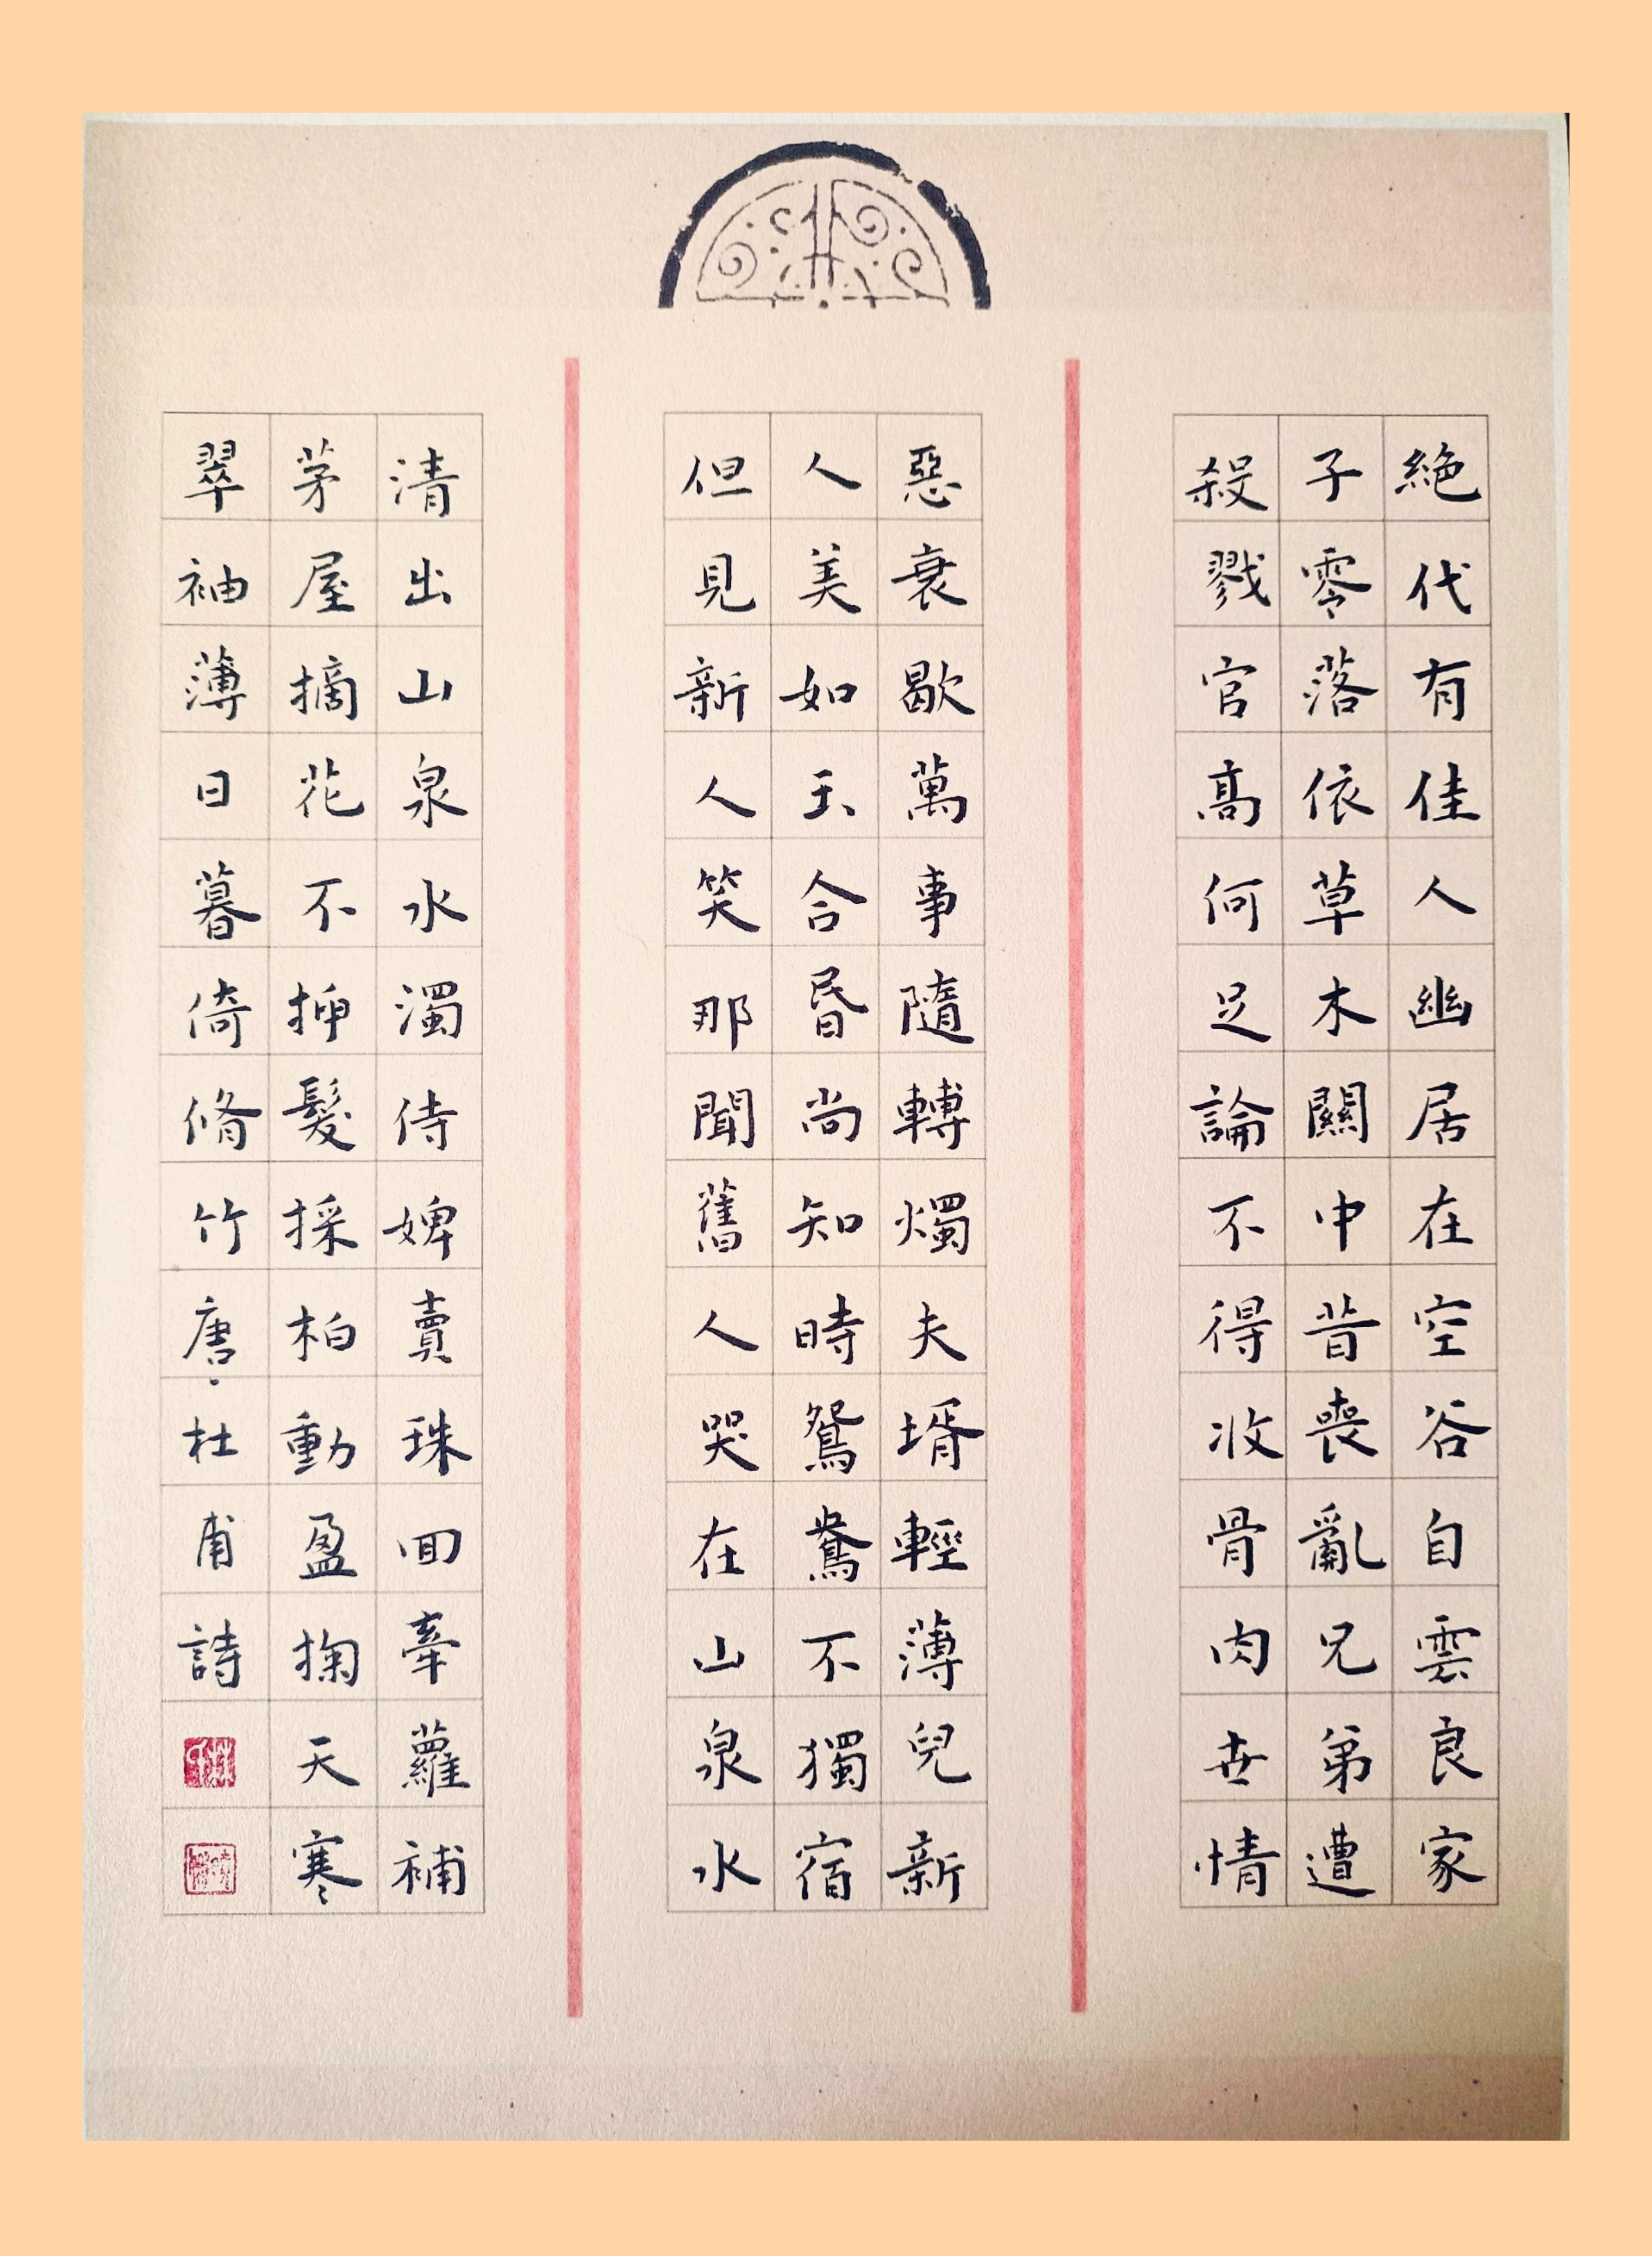 絕代有佳人幽居在空谷自雲良家
子零落依草木關中昔喪亂兄弟遭
殺戮官高何足論不得收骨肉世情
惡衰歇萬事隨轉燭夫壻輕薄兒新
人美如玉合昏尚知時鴛鴦不獨宿
但見新人笑那聞舊人哭在山泉水
清出山泉水濁侍婢賣珠回牽蘿補
茅屋摘花不押髮採柏動盈掬天寒
翠袖薄日暮倚脩竹唐杜甫詩